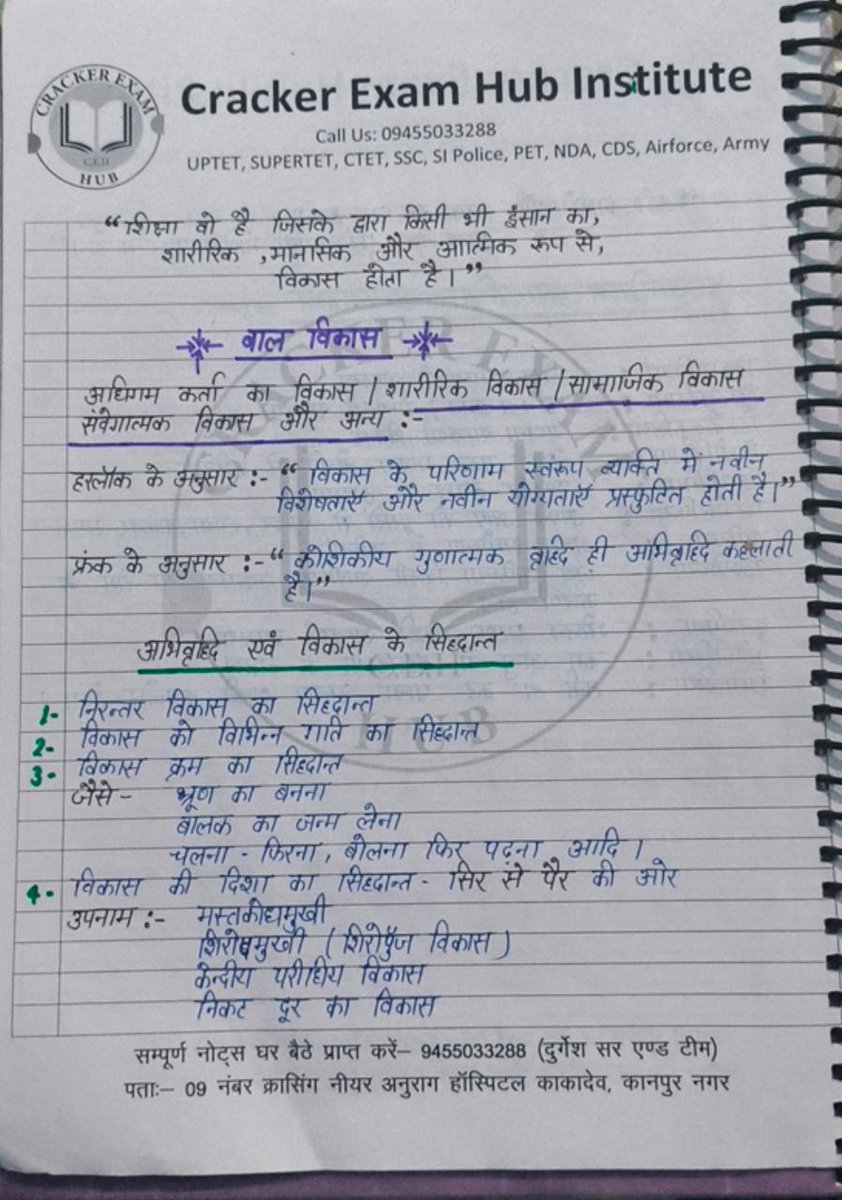 CRACKER EXAM
C.E.H
HUB
Cracker Exam Hub Institute
Call Us: 09455033288
UPTET, SUPERTET, CTET, SSC, SI Police, PET, NDA, CDS, Airforce, Army
“शिक्षा वो है जिसके द्वारा किसी भी इंसान का,
शारीरिक ,मानसिक और आत्मिक रूप से,
विकास होता है।”
बाल विकास
अधिगम कर्ता का विकास / शारीरिक विकास / सामाजिक विकास
संवेगात्मक विकास और अन्य :-
हरलॉक के अनुसार :- “ विकास के परिणाम स्वरूप व्यक्ति में नवीन
विशेषताएँ और नवीन योग्यताएँ प्रस्फुटित होती है।”
फ्रंक के अनुसार :-“ कोशिकीय गुणात्मक वृद्दि ही अभिवृद्दि कहलाती
है।”
अभिवृद्दि एवं विकास के सिद्दान्त
1- निरन्तर विकास का सिद्दान्त
2- विकास को विभिन्न गति का सिद्दान्त
3- विकास क्रम का सिद्दान्त
जैसे - भ्रूण का बनना
बालक का जन्म लेना
चलना - फिरना, बोलना फिर पढ़ना आदि ।
4- विकास की दिशा का सिद्दान्त - सिर से पैर की ओर
उपनाम :- मस्तकोधमुखी
शिरोधमुखी ( शिरोपुँज विकास )
केन्दीय परीधीय विकास
निकट दूर का विकास
सम्पूर्ण नोट्स घर बैठे प्राप्त करें– 9455033288 (दुर्गेश सर एण्ड टीम)
पताः– 09 नंबर क्रासिंग नीयर अनुराग हॉस्पिटल काकादेव, कानपुर नगर